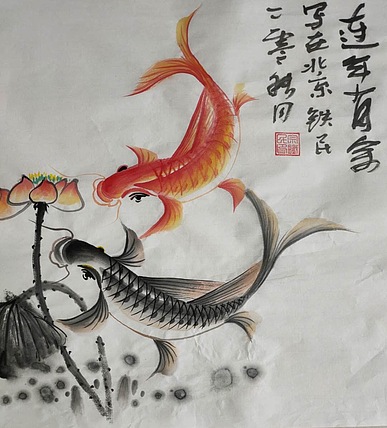 连年有余
写于北京铁民
二零